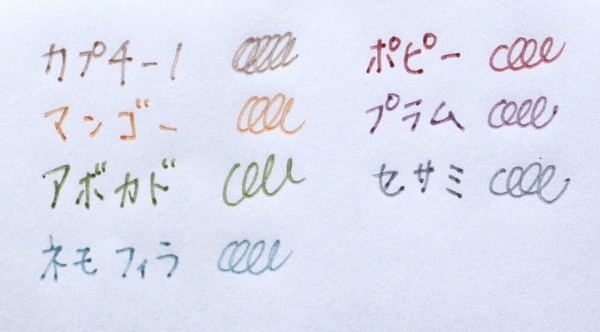 カプチーノ
マンゴー
アボカド
ネモフィラ
ポピー
プラム
セサミ